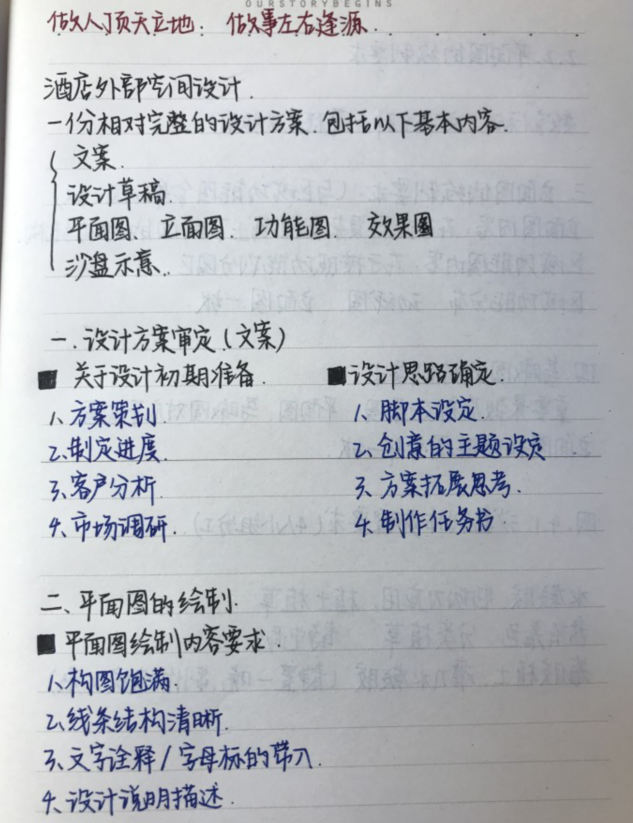 OURSTORYBEGINS
做人顶天立地；做事左右逢源．
酒店外部空间设计．
一份相对完整的设计方案．包括以下基本内容．
文案．
设计草稿．
平面图、立面图 功能图 效果图
沙盘示意．
一．设计方案审定（文案）
■ 关于设计初期准备． ■设计思路确定．
1、方案策划 1、脚本设定．
2、制定进度． 2、创意的主题设定
3、客户分析． 3、方案拓展思考．
4、市场调研． 4、制作任务书
二、平面图的绘制．
■ 平面图绘制内容要求．
1、构图饱满．
2、线条结构清晰．
3、文字诠释/字母标的带入．
4、设计说明描述．